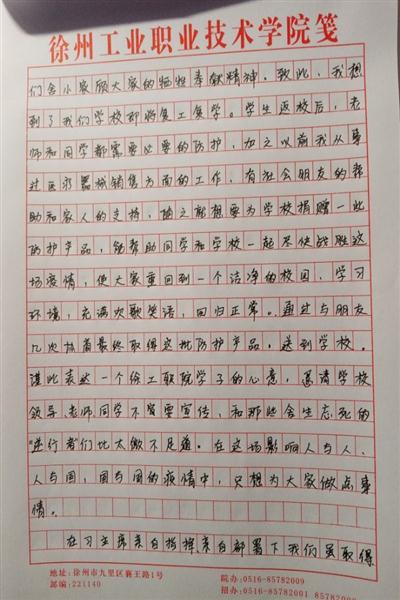 徐州工业职业技术学院笺
们舍小家顾大家的牺牲奉献精神。致此,我想
到了我们学校即将复工复学。学生返校后,老
师和同学都需要必要的防护,加之以前我从事
过医疗器械销售方面的工作,有社会朋友的帮
助和家人的支持,随之就想要为学校捐赠一些
防护产品,能帮助同学和学校一起尽快战胜这
场疫情,使大家重回到一个洁净的校园,学习
环境,充满欢歌笑语,回归正常。通过与朋友
几次协商最终取得这批防护产品,送到学校。
谨此表达一个徐工职院学子的心意,恳请学校
领导、老师同学不需要宣传,和那些舍生忘死的
“逆行者们比太微不足道。在这场影响人与人、
人与国,国与国的疫情中,只想为大家做点事
情。
在习主席亲自指挥、亲自部署下我们虽取得
地址:徐州市九里区襄王路1号
邮编:221140
院办:0516-85782009
招办:0516-85782001 85782008